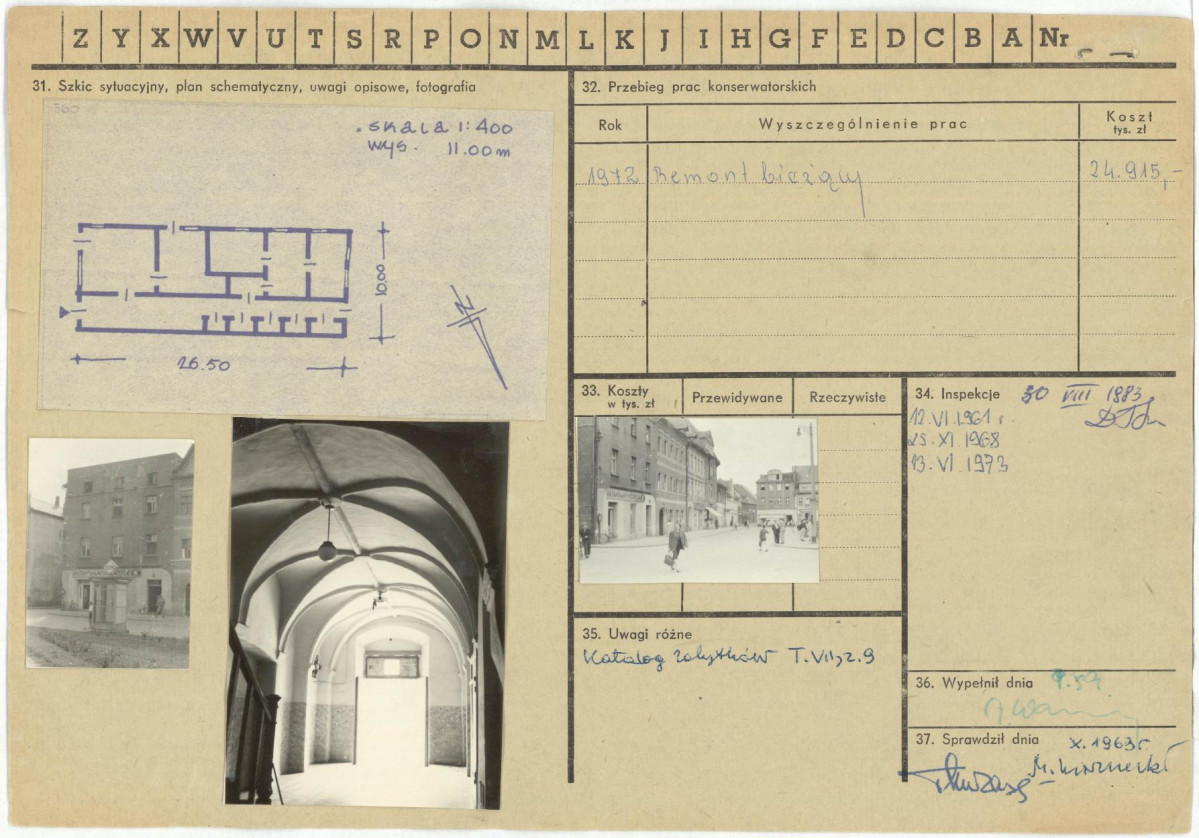 Z Y X W V U T S R P O N M L K J I H G F E D C B A Nr
31. Szkic sytuacyjny, plan schematyczny, uwagi opisowe, fotografia
360
skala 1:400
wys. 11.00m
10.00
26.50
32. Przebieg prac konserwatorskich
Rok Wyszczególnienie prac Koszt
tys. zł
1972 Remont bieżący 24.915,-
33. Koszty
w tys. zł
Przewidywane Rzeczywiste
34. Inspekcje 30 VIII 1983
12.VI.1961 r.
25.XI.1968
13.VI.1973
35. Uwagi różne
Katalog zabytków T.VII, z.9
36. Wypełnił dnia 9.59.
37. Sprawdził dnia X.1963r